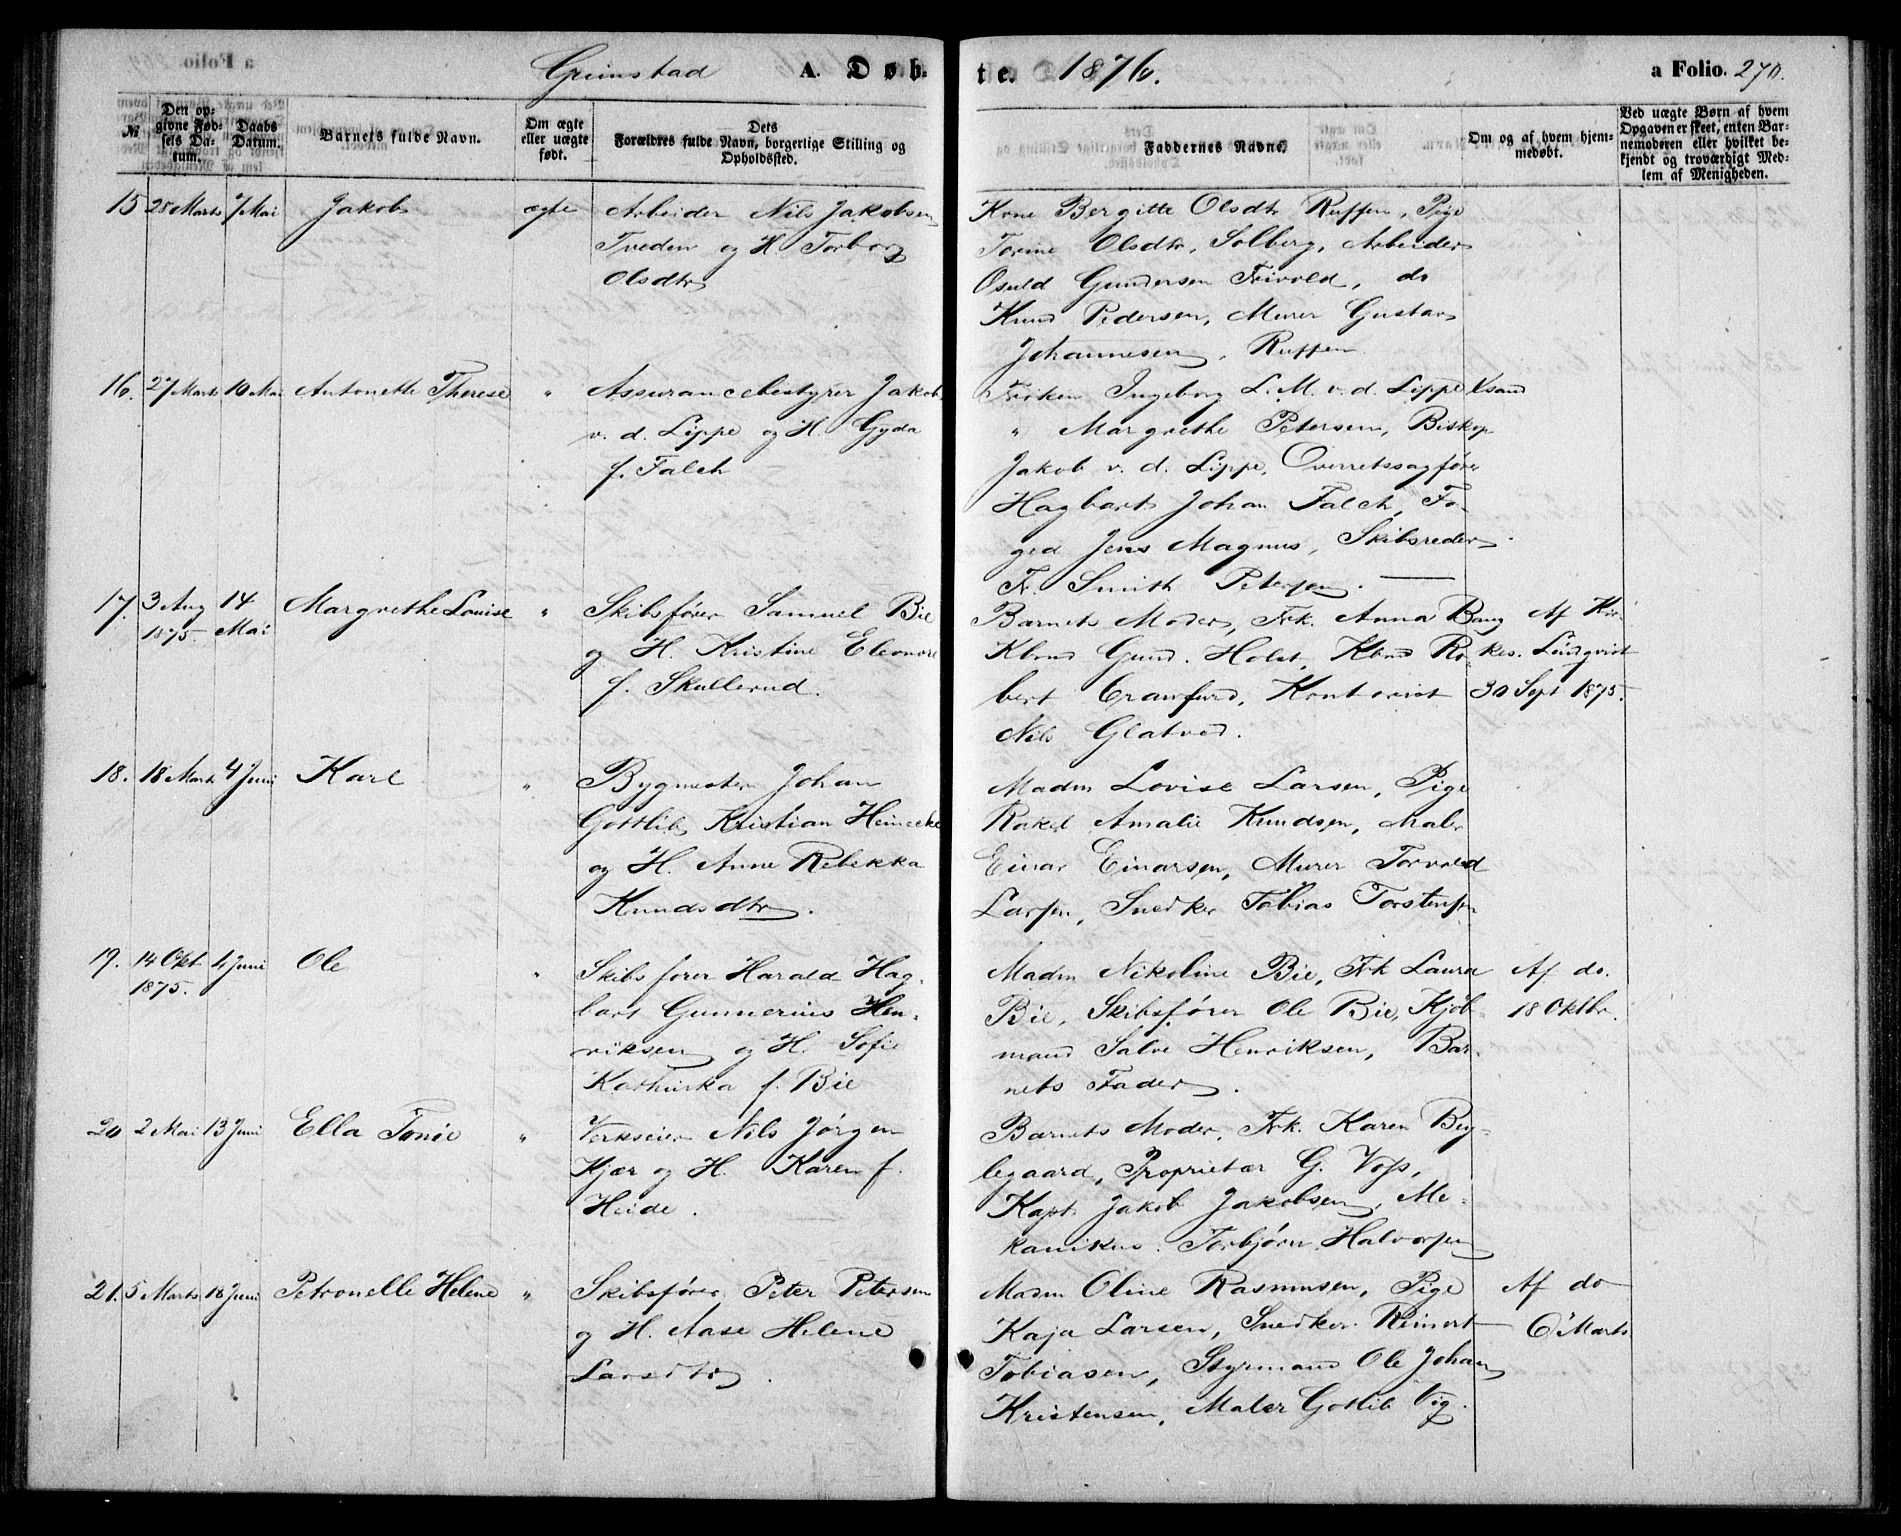 Grimstad A. Døbte. 1876. a Folio. 270.
№ Den opgivne Fødsels Datum. Daabs Datum. Barnets fulde Navn. Om ægte eller uægte født. Forældres fulde Navn, borgerlige Stilling og Dets Opholdsted. Faddernes Navne. Om og af hvem hjemmedøbt. Ved uægte Børn af hvem Opgaven er skeet, enten Barnemoderen eller hvilket bekjendt og troværdigt Medlem af Menigheden.
15 28 Marts 7 Mai Jakob ægte Arbeider Nils Jakobsen
Tveden og H. Torborg
Olsdtr
Kone Bergitte Olsdtr Ruffen, Pige
Tomine Olsdtr, Solberg, Arbeider
Osuld Gundersen Frivold, do
Knud Pedersen, Murer Gustav
Johannesen, Ruffen
16. 27 Marts 10 Mai Antonette Therese " Assurancebestyrer Jakob
v. d. Lippe og H. Gyda
f. Falch
Frøken Ingeborg L. M. v. d. Lippe Xsand
" Margrethe Petersen, Biskop
Jakob v. d. Lippe, Overretssagfører
Hagbart Johan Falch, Fo-
ged Jens Magnus, Skibsreder
Fr. Smith Petersen.
17. 3 Aug 1875. 14 Mai Margrethe Louise " Skibsfører Samuel Bie
og H. Kristine Eleonore
f. Skullerud.
Barnets Moder, Frk. Anna Bang
Kbmd Gund. Holst, Kbmd Ro-
bert Crawfurd, Kontorist
Nils Glatved.
Af Kir-
kes. Lindqvist
30 Sept 1875.
18. 18 Marts 4 Juni Karl " Bygmester Johan
Gottlib Kristian Heinecke
og H. Anne Rebekka
Knudsdtr.
Madm Lovise Larsen, Pige
Rakel Amalie Knudsen, Maler
Einar Einarsen, Murer Torvald
Larsen, Snedker Tobias Torstensen
19. 14 Okt 1875. 4 Juni Ole " Skibsfører Harald Hag-
bart Gunnerius Hen-
riksen og H. Sofie
Kathinka f. Bie
Madm Nikoline Bie, Frk Laura
Bie, Skibsfører Ole Bie, Kjøb-
mand Salve Henriksen, Bar-
nets Fader.
Af do.
18 Oktbr.
20 2 Mai 13 Juni Ella Tonie " Verkseier Nils Jørgen
Kjær og H. Karen f.
Heide.
Barnets Moder, Frk. Karen Byg-
legaard, Proprietær G. Voss,
Kapt Jakob Jakobsen, Me-
kanikus Torbjørn Halvorsen
21. 5 Marts 18 Juni Petronelle Helene " Skibsfører Peter Petersen
og H. Aase Helene
Larsdtr.
Madm Oline Rasmusen, Pige
Kaja Larsen, Snedker Reinert
Tobiasen, Styrmand Ole Johan
Kristensen, Maler Gotlib Vig.
Af do
6 Marts